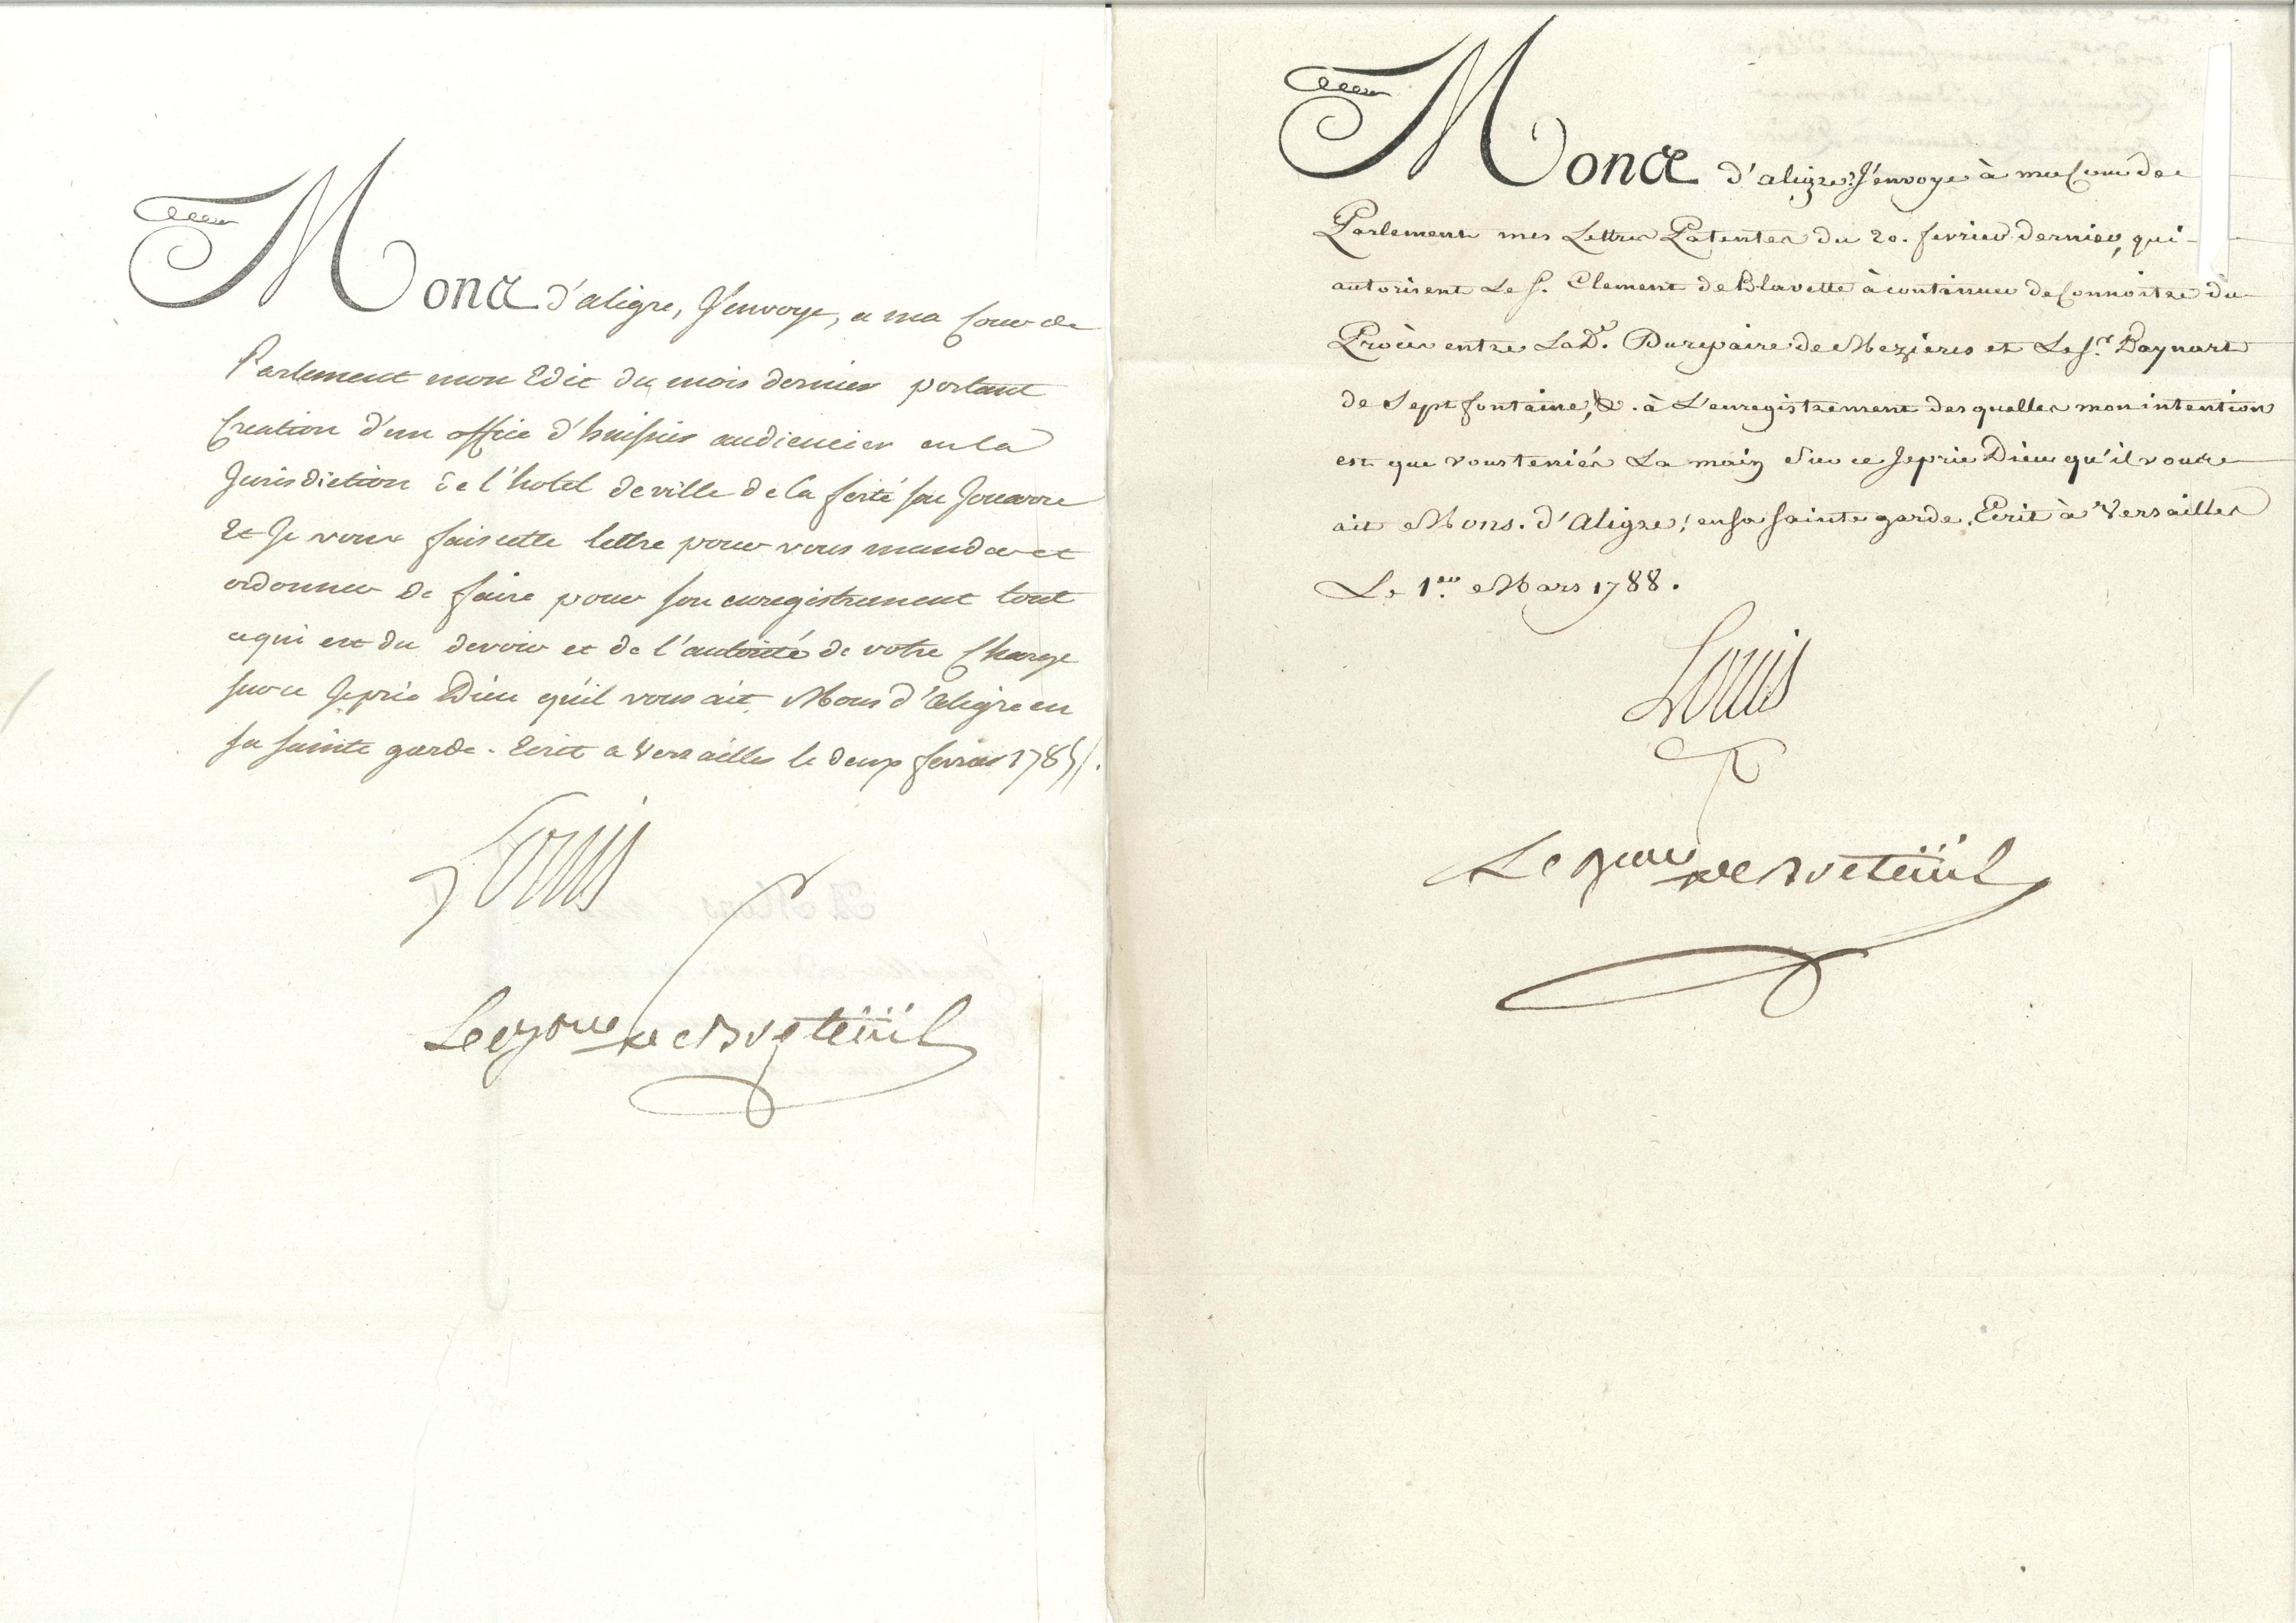 Mons d'aligre, J'envoye, a ma Cour de
Parlement mon Edit du mois dernier portant
Creation d'un office d'huissier audiencier en la
Jurisdiction de l'hotel de ville de la ferté sou Jouarre
Et Je vous fais cette lettre pour vous mander et
ordonner de faire pour son enregistrement tout
ce qui est du devoir et de l'autorité de votre Charge
sur ce Je prie Dieu qu'il vous ait Mons d'aligre en
sa sainte garde. Ecrit a Versailles le deux fevrier
Louis
Le Bon de Breteüil
Mons d'aligre, J'envoye à ma Cour de
Parlement mes Lettres Patentes du 20. fevrier dernier, qui
autorisent Le S. Clement de Blavette à continuer de Connoitre du
Procès entre La De. Durepaire de Mezières et Le Sr.
de Sept fontaine, &. à L'enregistrement des quelles mon intention
est que vous teniés La main Sur ce Je prie Dieu qu'il vous
ait Mons. d'Aligre, en sa sainte garde. Ecrit à Versailles
Le 1er. Mars 1788.
Louis
Le Bon de Breteüil